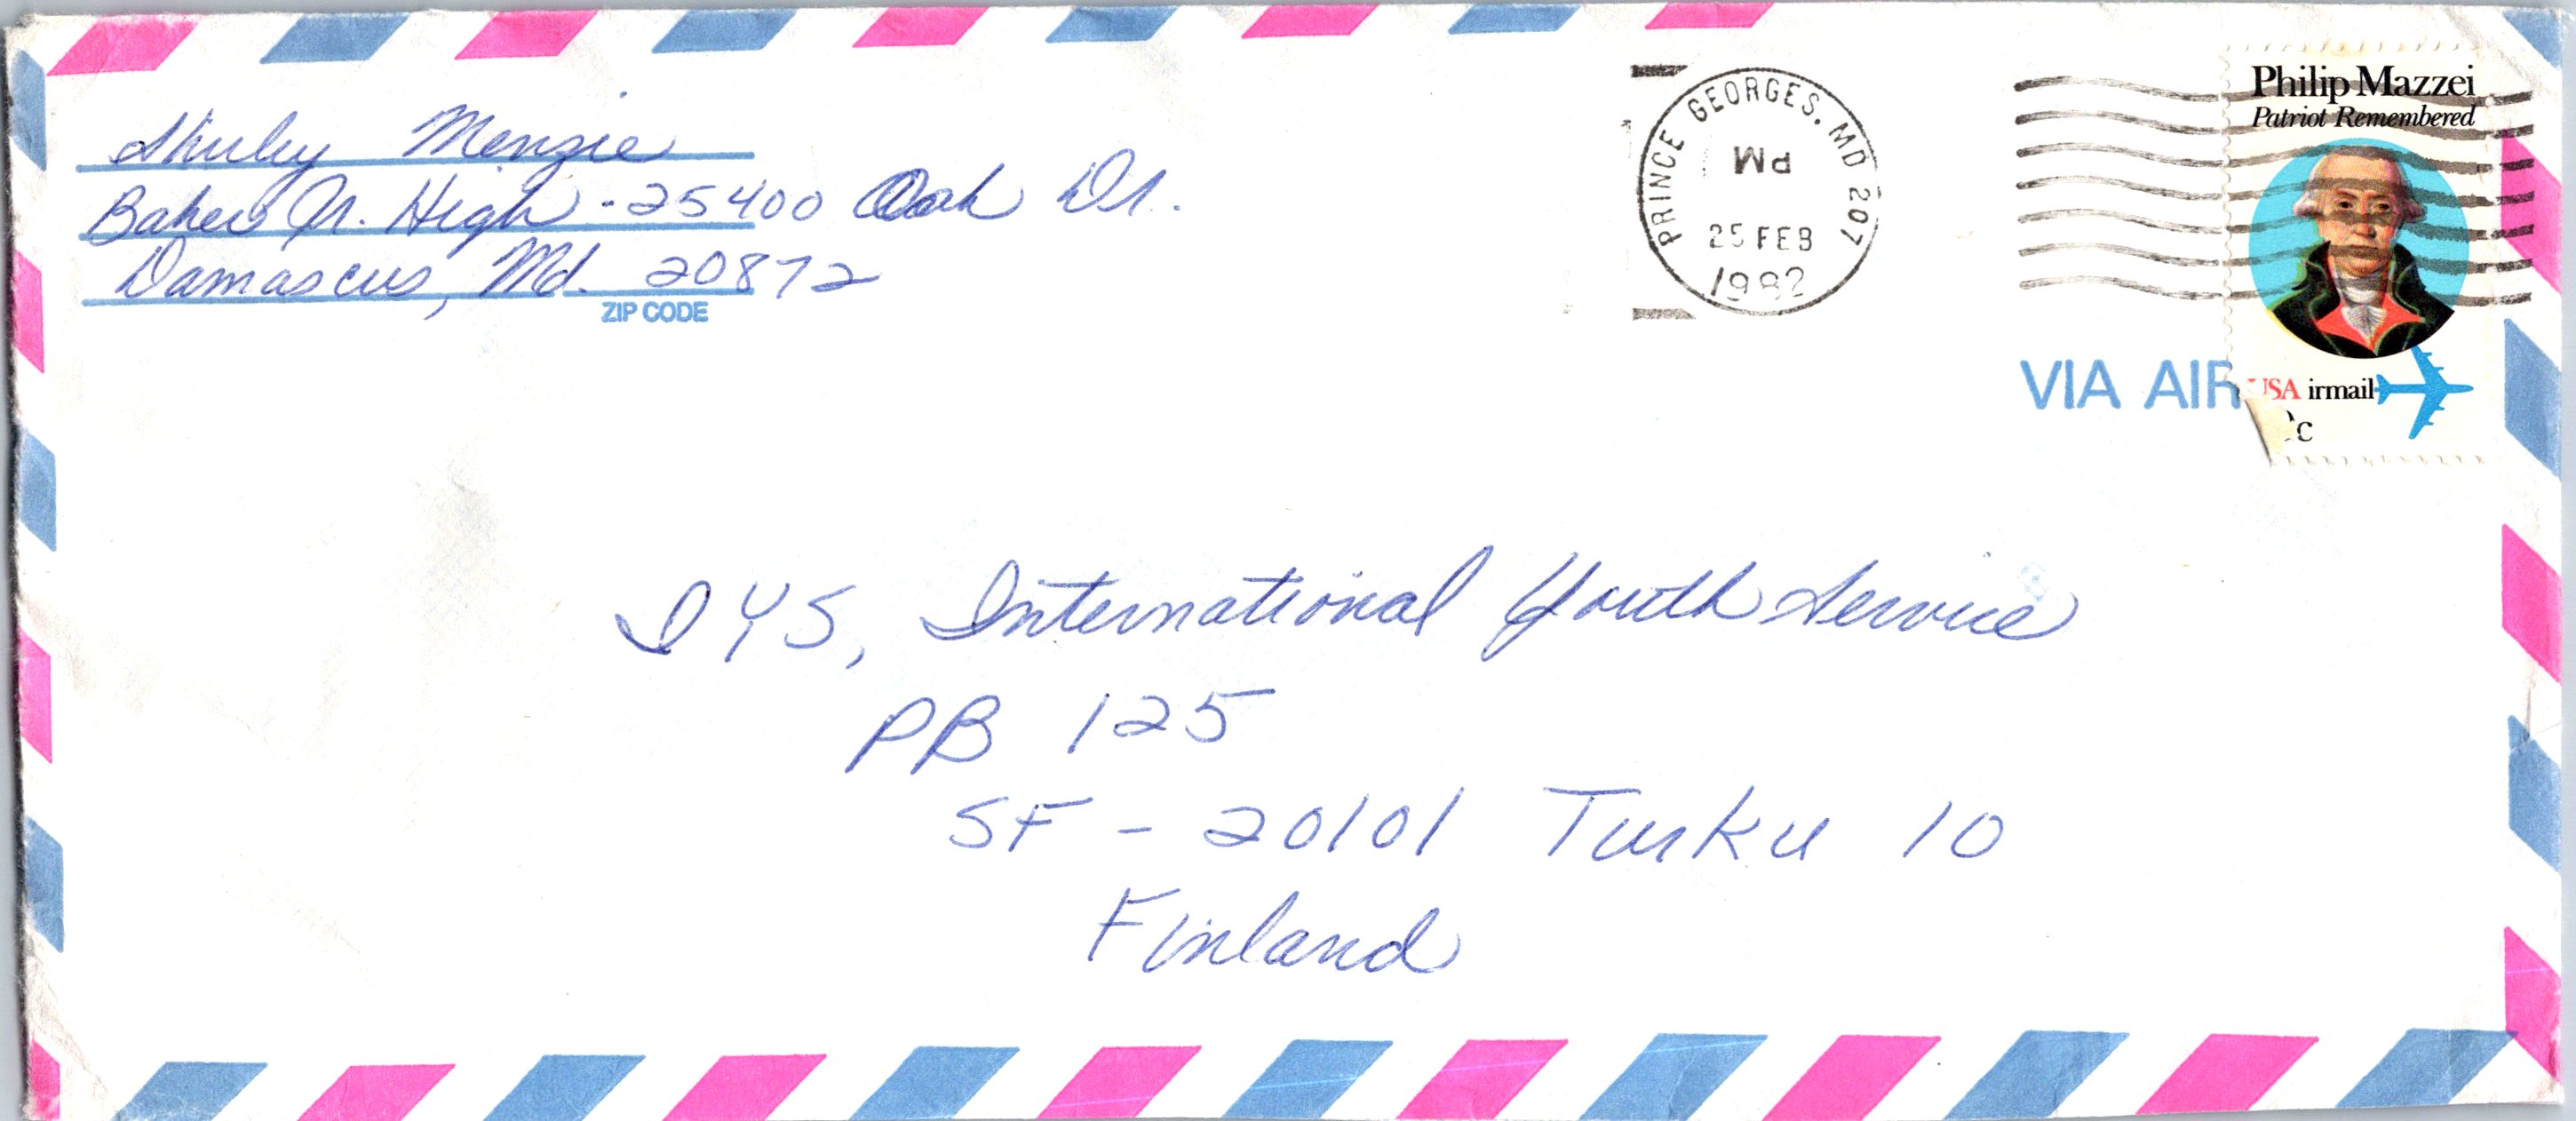 Shirley Menzie
Baker Jr. High - 25400 Oak Dr.
Damascus, Md. 20872
ZIP CODE
PRINCE GEORGES, MD 207
PM
25 FEB
1982
Philip Mazzei
Patriot Remembered
VIA AIR
USA irmail
c
IYS, International Youth Service
PB 125
SF - 20101 Turku 10
Finland